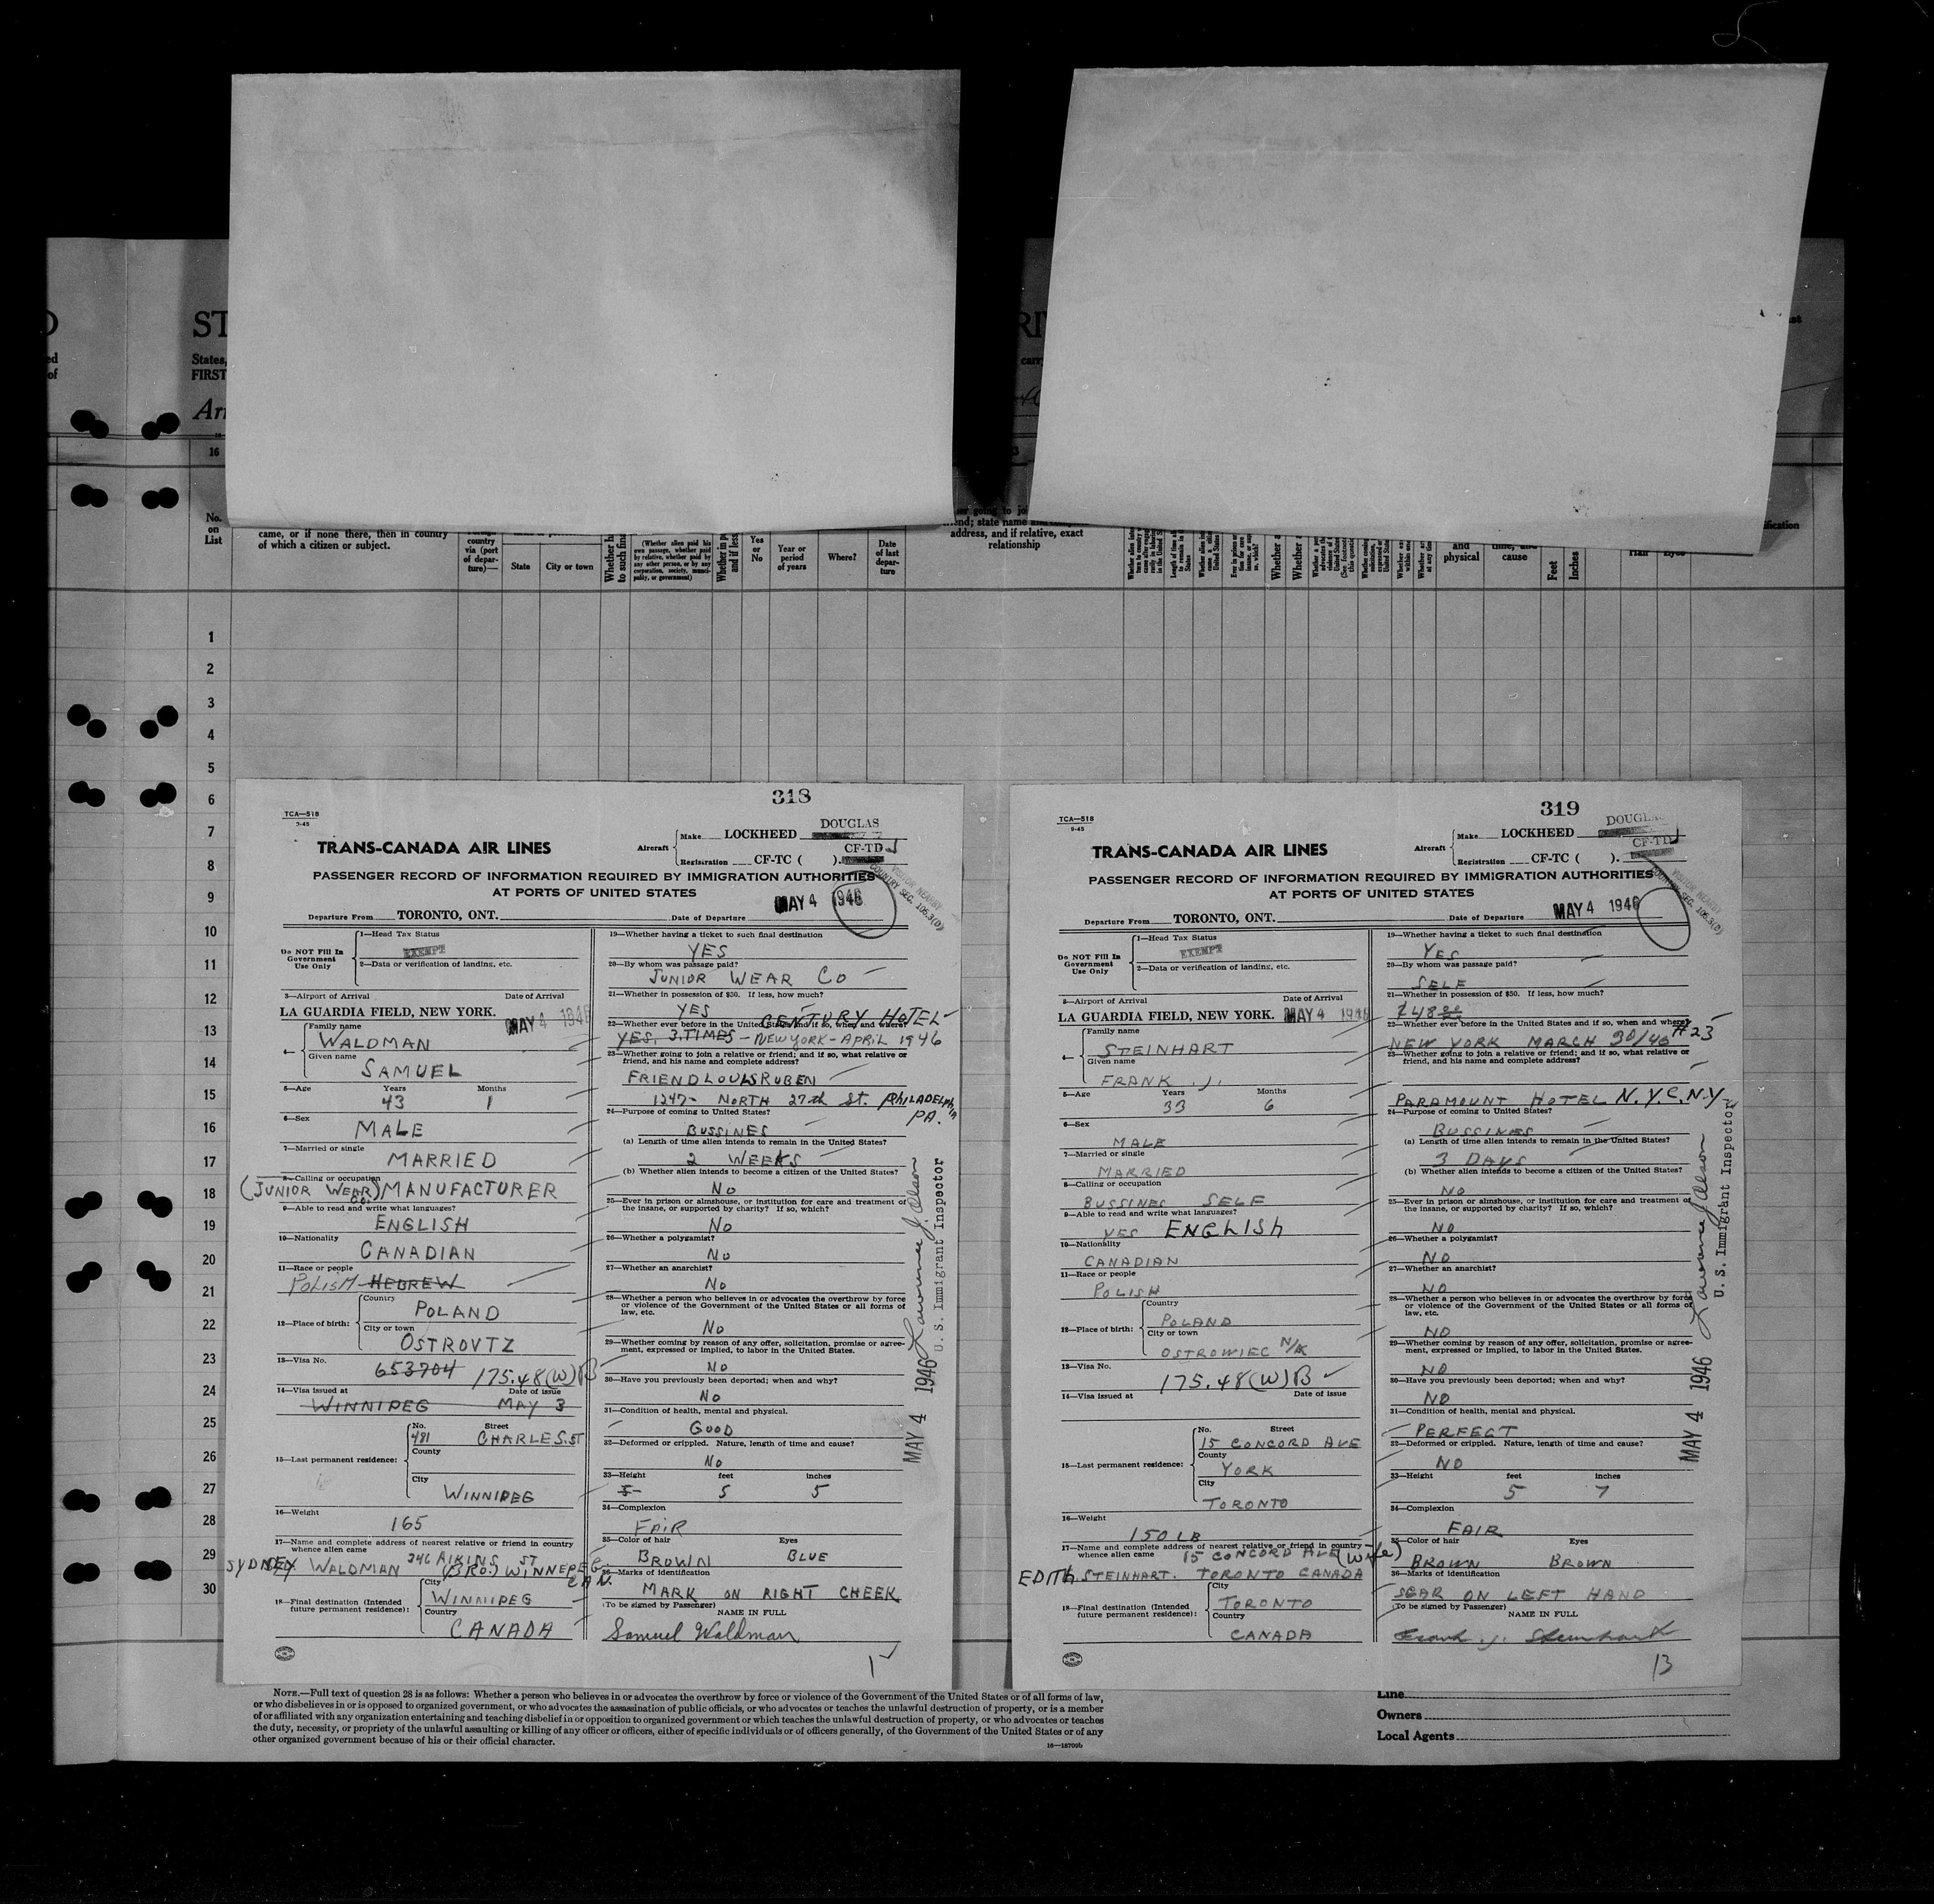 ST
States,
FIRST
16
No.
on
List
came, or if none there, then in country
of which a citizen or subject.
country
via (port
of depar-
ture)—
State
City or town
(Whether alien paid his
own passage, whether paid
by relative, whether paid by
any other person, or by any
corporation, society, munici-
pality, or government)
Yes
or
No
Year or
period
of years
Where?
Date
of last
depar-
ture
address, and if relative, exact
relationship
and
physical
cause
Feet
Inches
1
2
3
4
5
6
7
8
9
10
11
12
13
14
15
16
17
18
19
20
21
22
23
24
25
26
27
28
29
30
318
TCA—518
TRANS-CANADA AIR LINES
Aircraft
Make LOCKHEED
DOUGLAS
Registration CF-TC ( ).
CF-TD J
PASSENGER RECORD OF INFORMATION REQUIRED BY IMMIGRATION AUTHORITIES
AT PORTS OF UNITED STATES
VISITOR NEARBY
COUNTRY SEC. 105.3(0)
Departure From TORONTO, ONT. Date of Departure MAY 4 1946
Do NOT Fill In
Government
Use Only
1—Head Tax Status
EXEMPT
2—Data or verification of landing, etc.
3—Airport of Arrival Date of Arrival
LA GUARDIA FIELD, NEW YORK. MAY 4 1946
4— Family name
WALDMAN
Given name
SAMUEL
5—Age Years Months
43 1
6—Sex
MALE
7—Married or single
MARRIED
8—Calling or occupation
(JUNIOR WEAR CO.) MANUFACTURER
9—Able to read and write what languages?
ENGLISH
10—Nationality
CANADIAN
11—Race or people
POLISH HEBREW
12—Place of birth:
Country
POLAND
City or town
OSTROVTZ
13—Visa No.
653704 175.48(W)B
14—Visa issued at Date of issue
WINNIPEG MAY 3
15—Last permanent residence:
No. Street
481 CHARLES. ST
County
City
WINNIPEG
16—Weight
165
17—Name and complete address of nearest relative or friend in country
whence alien came
346 AIKINS ST
SYDNEY WALDMAN (BRO.) WINNEPEG
CAN.
18—Final destination (Intended
future permanent residence):
City
WINNIPEG
Country
CANADA
19—Whether having a ticket to such final destination
YES
20—By whom was passage paid?
JUNIOR WEAR CO
21—Whether in possession of $50. If less, how much?
YES
CENTURY HOTEL
22—Whether ever before in the United States and if so, when and where?
YES, 3 TIMES - NEW YORK - APRIL 1946
23—Whether going to join a relative or friend; and if so, what relative or
friend, and his name and complete address?
FRIEND LOUIS RUBEN
1247- NORTH 27th St. PHILADELPHIA
PA.
24—Purpose of coming to United States?
BUSSINES
(a) Length of time alien intends to remain in the United States?
2 WEEKS
(b) Whether alien intends to become a citizen of the United States?
NO
25—Ever in prison or almshouse, or institution for care and treatment of
the insane, or supported by charity? If so, which?
NO
26—Whether a polygamist?
NO
27—Whether an anarchist?
NO
28—Whether a person who believes in or advocates the overthrow by force
or violence of the Government of the United States or all forms of
law, etc.
NO
29—Whether coming by reason of any offer, solicitation, promise or agree-
ment, expressed or implied, to labor in the United States.
NO
30—Have you previously been deported; when and why?
NO
31—Condition of health, mental and physical.
GOOD
32—Deformed or crippled. Nature, length of time and cause?
NO
33—Height feet inches
5 5
34—Complexion
FAIR
35—Color of hair Eyes
BROWN BLUE
36—Marks of identification
MARK ON RIGHT CHEEK
(To be signed by Passenger)
NAME IN FULL
Samuel Waldman
MAY 4 1946
Lawrence J. Olson
U. S. Immigrant Inspector
319
TCA—518
9-45
TRANS-CANADA AIR LINES
Aircraft
Make LOCKHEED
DOUGLAS
Registration CF-TC ( ).
CF-TD J
PASSENGER RECORD OF INFORMATION REQUIRED BY IMMIGRATION AUTHORITIES
AT PORTS OF UNITED STATES
VISITOR NEARBY
COUNTRY SEC. 105.3(0)
Departure From TORONTO, ONT. Date of Departure MAY 4 1946
Do NOT Fill In
Government
Use Only
1—Head Tax Status
EXEMPT
2—Data or verification of landing, etc.
3—Airport of Arrival Date of Arrival
LA GUARDIA FIELD, NEW YORK. MAY 4 1946
4— Family name
STEINHART
Given name
FRANK J.
5—Age Years Months
33 6
6—Sex
MALE
7—Married or single
MARRIED
8—Calling or occupation
BUSSINES SELF
9—Able to read and write what languages?
YES ENGLISH
10—Nationality
CANADIAN
11—Race or people
POLISH
12—Place of birth:
Country
POLAND
City or town
OSTROWIEC N/K
13—Visa No.
175.48(W)B
14—Visa issued at Date of issue
15—Last permanent residence:
No. Street
15 CONCORD AVE
County
YORK
City
TORONTO
16—Weight
150 LB
17—Name and complete address of nearest relative or friend in country
whence alien came
15 CONCORD AVE (Wife)
EDITH STEINHART. TORONTO CANADA
18—Final destination (Intended
future permanent residence):
City
TORONTO
Country
CANADA
19—Whether having a ticket to such final destination
YES
20—By whom was passage paid?
SELF
21—Whether in possession of $50. If less, how much?
22—Whether ever before in the United States and if so, when and where?
NEW YORK MARCH 30/46 #23
23—Whether going to join a relative or friend; and if so, what relative or
friend, and his name and complete address?
PARAMOUNT HOTEL N.Y.C. N.Y
24—Purpose of coming to United States?
BUSSINES
(a) Length of time alien intends to remain in the United States?
3 DAYS
(b) Whether alien intends to become a citizen of the United States?
NO
25—Ever in prison or almshouse, or institution for care and treatment of
the insane, or supported by charity? If so, which?
NO
26—Whether a polygamist?
NO
27—Whether an anarchist?
NO
28—Whether a person who believes in or advocates the overthrow by force
or violence of the Government of the United States or all forms of
law, etc.
NO
29—Whether coming by reason of any offer, solicitation, promise or agree-
ment, expressed or implied, to labor in the United States.
NO
30—Have you previously been deported; when and why?
NO
31—Condition of health, mental and physical.
PERFECT
32—Deformed or crippled. Nature, length of time and cause?
NO
33—Height feet inches
5 7
34—Complexion
FAIR
35—Color of hair Eyes
BROWN BROWN
36—Marks of identification
SCAR ON LEFT HAND
(To be signed by Passenger)
NAME IN FULL
Frank J. Steinhart
13
MAY 4 1946
Lawrence J. Olson
U. S. Immigrant Inspector
NOTE.—Full text of question 28 is as follows: Whether a person who believes in or advocates the overthrow by force or violence of the Government of the United States or of all forms of law,
or who disbelieves in or is opposed to organized government, or who advocates the assassination of public officials, or who advocates or teaches the unlawful destruction of property, or is a member
of or affiliated with any organization entertaining and teaching disbelief in or opposition to organized government or which teaches the unlawful destruction of property, or who advocates or teaches
the duty, necessity, or propriety of the unlawful assaulting or killing of any officer or officers, either of specific individuals or of officers generally, of the Government of the United States or of any
other organized government because of his or their official character.
Line
Owners
Local Agents